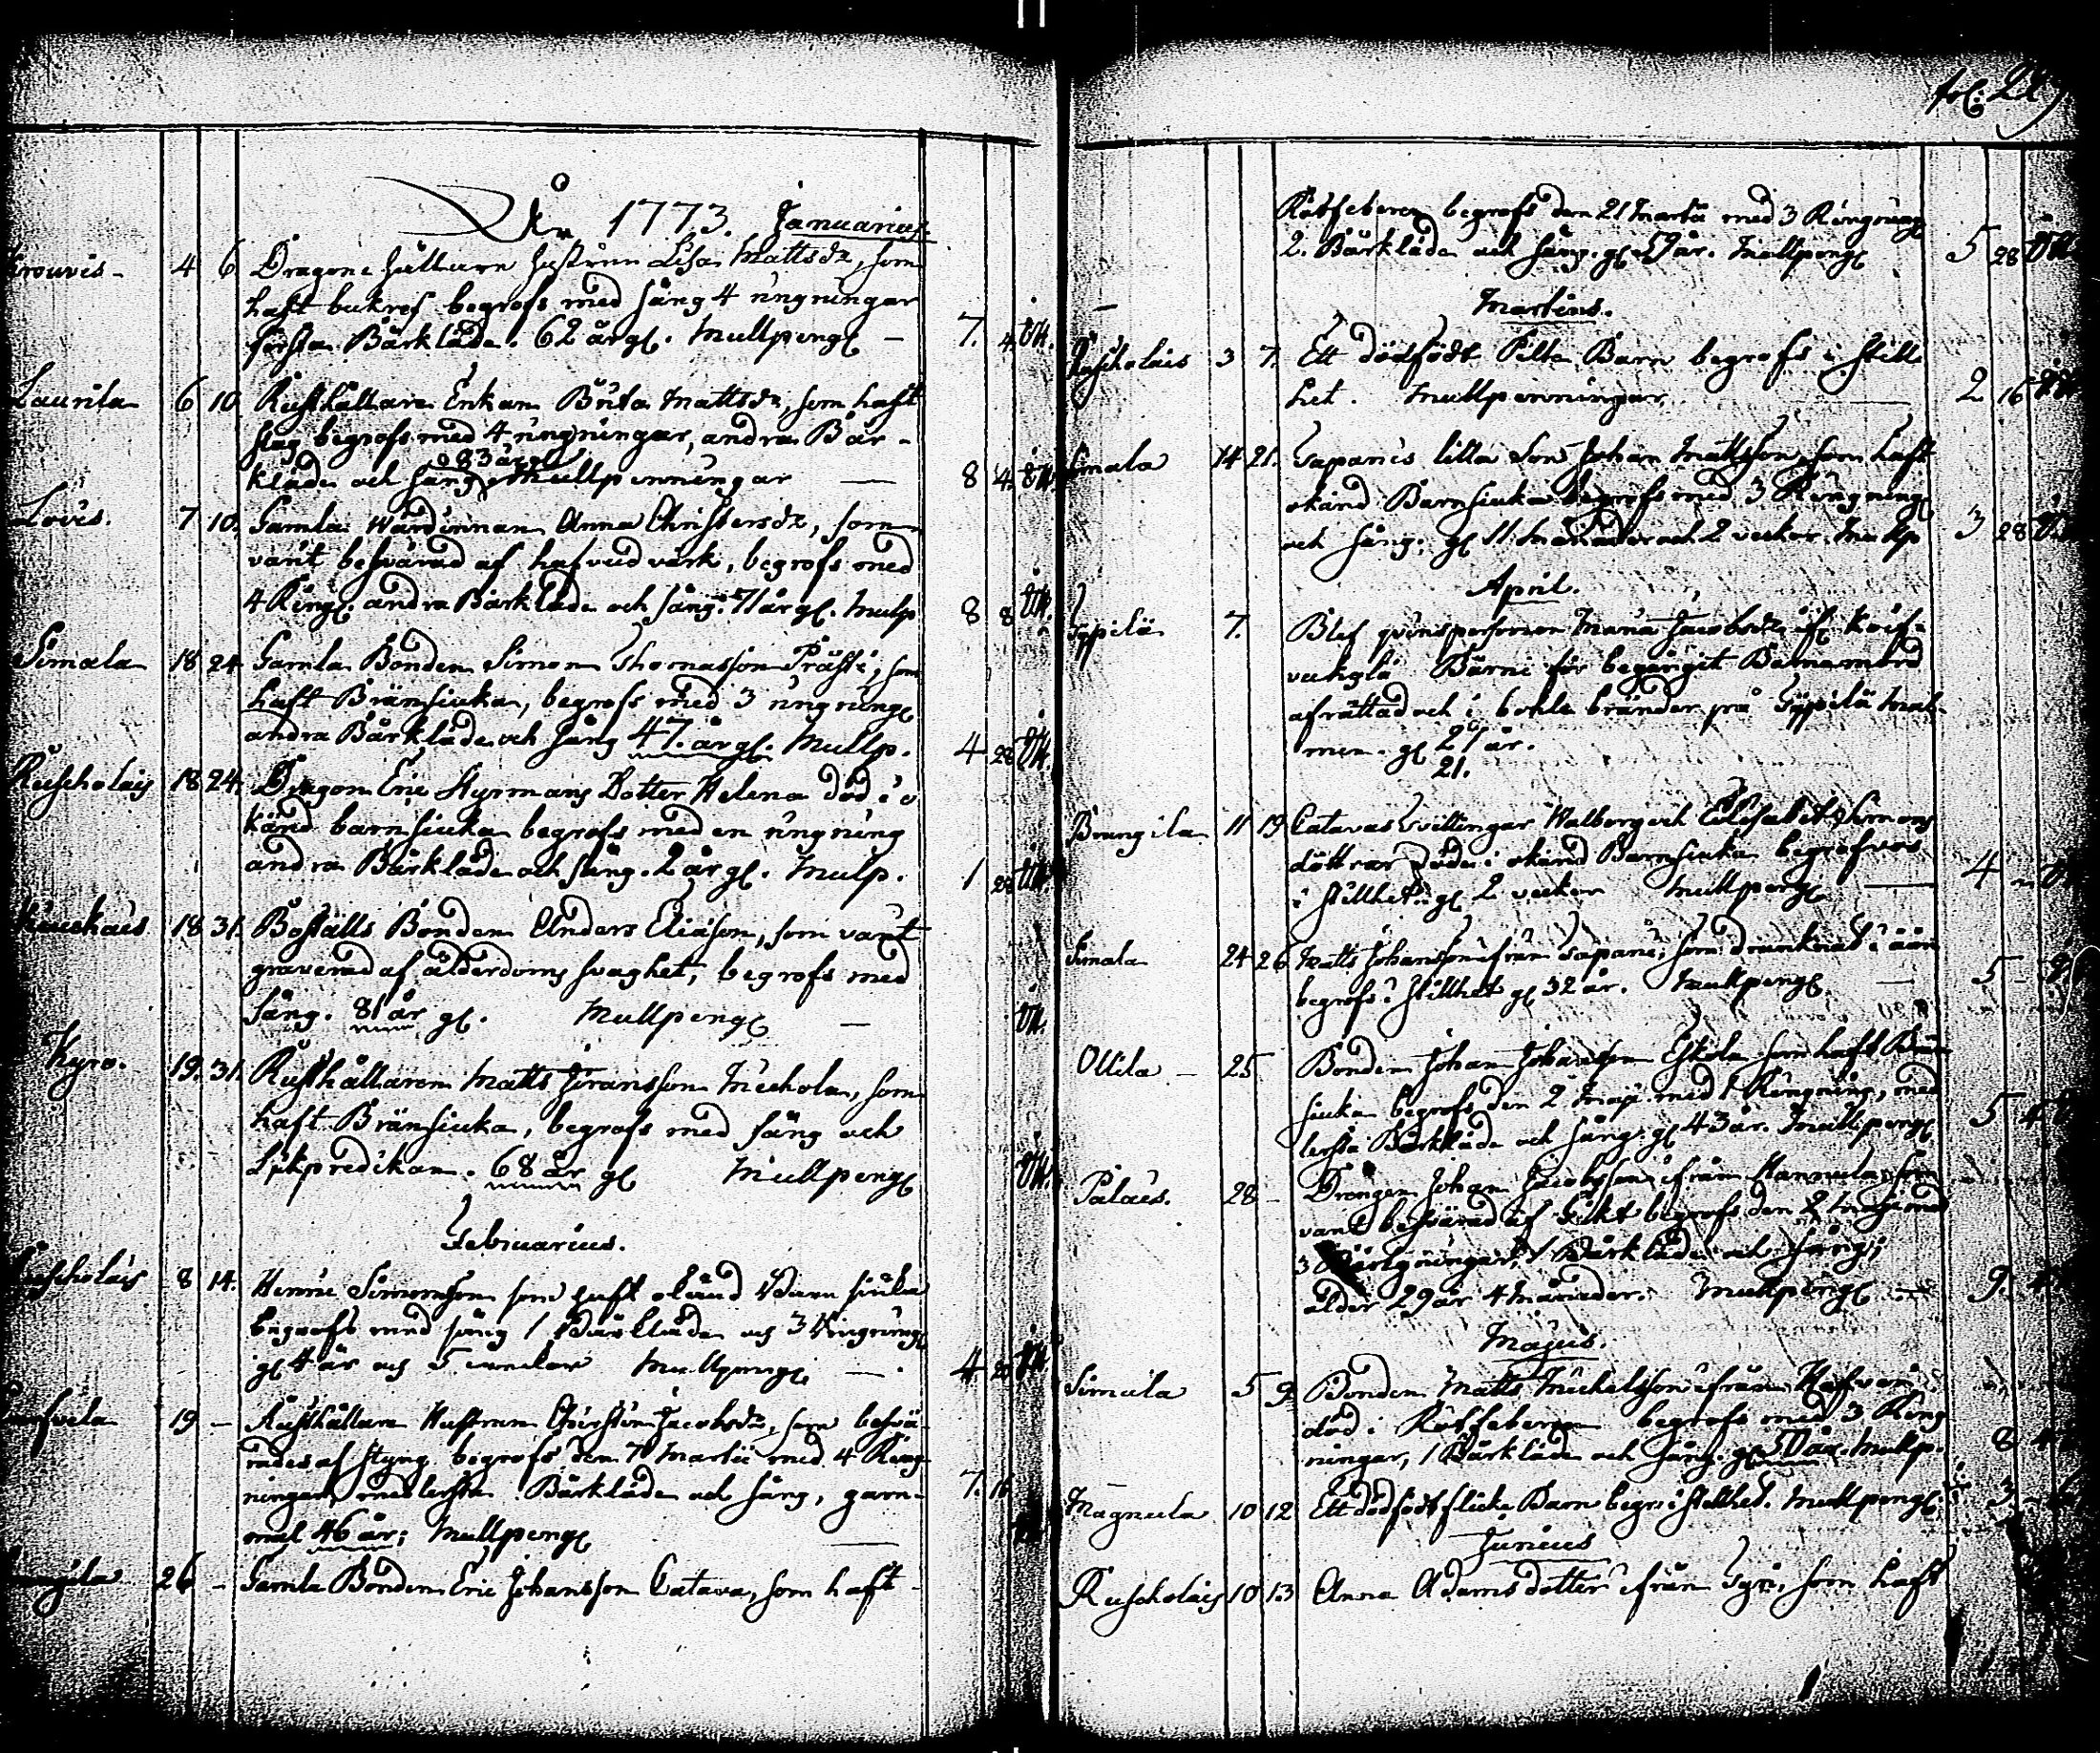 År 1773. Januarius.
Krouvis - 4 6 Dragone hållaren hustrun Lisa Mattsdr, som
haft bukref begrofs med sång 4 ringningar
första Bårkläde. 62 år gl. Mullpeng - 7. 4.
Laurila 6 10. Rusthållare Enkan Brita Mattsdr, som haft
slag begrofs med 4 ringningar, andra Bår-
83 år gl
kläde och sång Mullpenningar — 8 4.
Lovis. 7 10. Gamla Wärdinnan Anna Christersdr, som
varit besvärad af hufvudvärk, begrofs med
4 Ring. andra Bårkläde och sång. 71 år gl. Mulp 8 8
Simala 18 24 Gamla Bonden Simon Thomasson Prästi, som
haft Bränsiuka, begrofs med 3 ringning
andra Bårkläde och sång 47. år gl. Mullp. 4 28
Ruskolais 18 24. Dragon Eric Hyrmans Dotter Helena död i o
känd barnsiuka begrofs med en ringning
andra Bårkläde och sång. 2 år gl. Mulp. 1 28
18 31. Boställs Bonden Anders Eliæson, som varit
graverad af ålderdoms svaghet, begrofs med
Sång. 81 år gl. Mullpeng —
Kyro. 19. 31. Rusthållaren Matts Jöransson Muckola, som
haft Bränsiuka, begrofs med sång och
Likpredikan. 68 år gl Mullpeng
Februarius.
Ruskolais 8 14. Henric Simonsson som haft okänd Barn siuka
begrofs med sång 1 Bårkläde och 3 Ringning
gl 4 år och 5 veckor Mullpeng — 4 28
19 - Rusthållare Hustrun Christin Jacobsdr, som besvä-
rades af styng begrofs den 7 Martii med 4 Ring-
ningar, medlersta Bårkläde och sång, gam- 7. 16
mal 46 år; Mullpeng —
26 - Gamla Bonden Eric Johansson Catava, som haft
fol: 219
Rötfeberen begrofs den 21 Martii med 3 Ringning
2. Bårkläde och sång. gl 59 år. Mullpeng 5 28
Martius.
Ruskolais 3 7. Ett dödfödt Pilte Barn begrofs i still
het. Mullpenningar — 2 16
Simala 14 21. Tapanis lilla Son Johan Mattsson som haft
okänd Barnsiuka begrofs med 3 Ringning
och sång; gl 11 månader och 2 veckor. Mullp 3 28
April.
Yypilä 7. Blef qvinspersonen Maria Jacobsdr ifr.
Bärni för begångit Barnamord
afrättad och i bohle bränder på Yypilä mal-
men. gl 21 år.
21.
Brungila 11 19 Catavas Tvillingar Walborg och Elisabet Simons
döttrar döde i okänd Barnsiuka begrofvos
i stillhet gl 2 veckor Mullpeng — 4
Simala 24 26 Matts Johansson ifrån Tapani, som drunknat i åån
begrofs i stillhet gl 32 år. Mullpeng. — 5
Ollila - 25 Bonden Johan Johansson Eskola som haft Brän
siuka begrofs den 2 Maji med 1 Ringning, med
lersta Bårkläde och sång. gl 43 år. Mullpeng 5 4
Palais. 28 - Drengen Johan Jacobsson ifrån Hannula som
varit besvärad af Gikt begrofs den 2 Maji med
3 Ringningar, 1 Bårkläde och sång;
ålder 29 år 4 månader. Mullpeng — 9.
Majus.
Simala 5 9 Bonden Matts Michelsson ifrån
död i Rötfeberen begrofs med 3 Ring
ningar, 1 Bårkläde och sång. gl 50 år. Mullp. 8
Magnula 10 12 Ett dödfödt flicke Barn begrs i stillhet. Mullpeng. 3
Junius
Ruskolais 10 13 Anna Adams dotter ifrån Tyri, som haft